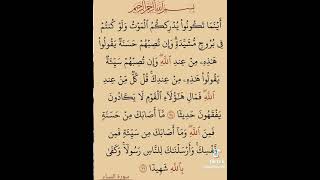 بِسْمِ ٱللَّهِ ٱلرَّحْمَٰنِ ٱلرَّحِيمِ
أَيْنَمَا تَكُونُوا۟ يُدْرِككُّمُ ٱلْمَوْتُ وَلَوْ كُنتُمْ
فِى بُرُوجٍ مُّشَيَّدَةٍ وَإِن تُصِبْهُمْ حَسَنَةٌ يَقُولُوا۟
هَٰذِهِۦ مِنْ عِندِ ٱللَّهِ وَإِن تُصِبْهُمْ سَيِّئَةٌ
يَقُولُوا۟ هَٰذِهِۦ مِنْ عِندِكَ قُلْ كُلٌّ مِّنْ عِندِ
ٱللَّهِ فَمَالِ هَٰٓؤُلَآءِ ٱلْقَوْمِ لَا يَكَادُونَ
يَفْقَهُونَ حَدِيثًا ۝ مَّآ أَصَابَكَ مِنْ حَسَنَةٍ
فَمِنَ ٱللَّهِ وَمَآ أَصَابَكَ مِن سَيِّئَةٍ فَمِن
نَّفْسِكَ وَأَرْسَلْنَٰكَ لِلنَّاسِ رَسُولًا وَكَفَىٰ
بِٱللَّهِ شَهِيدًا ۝
سورة النساء